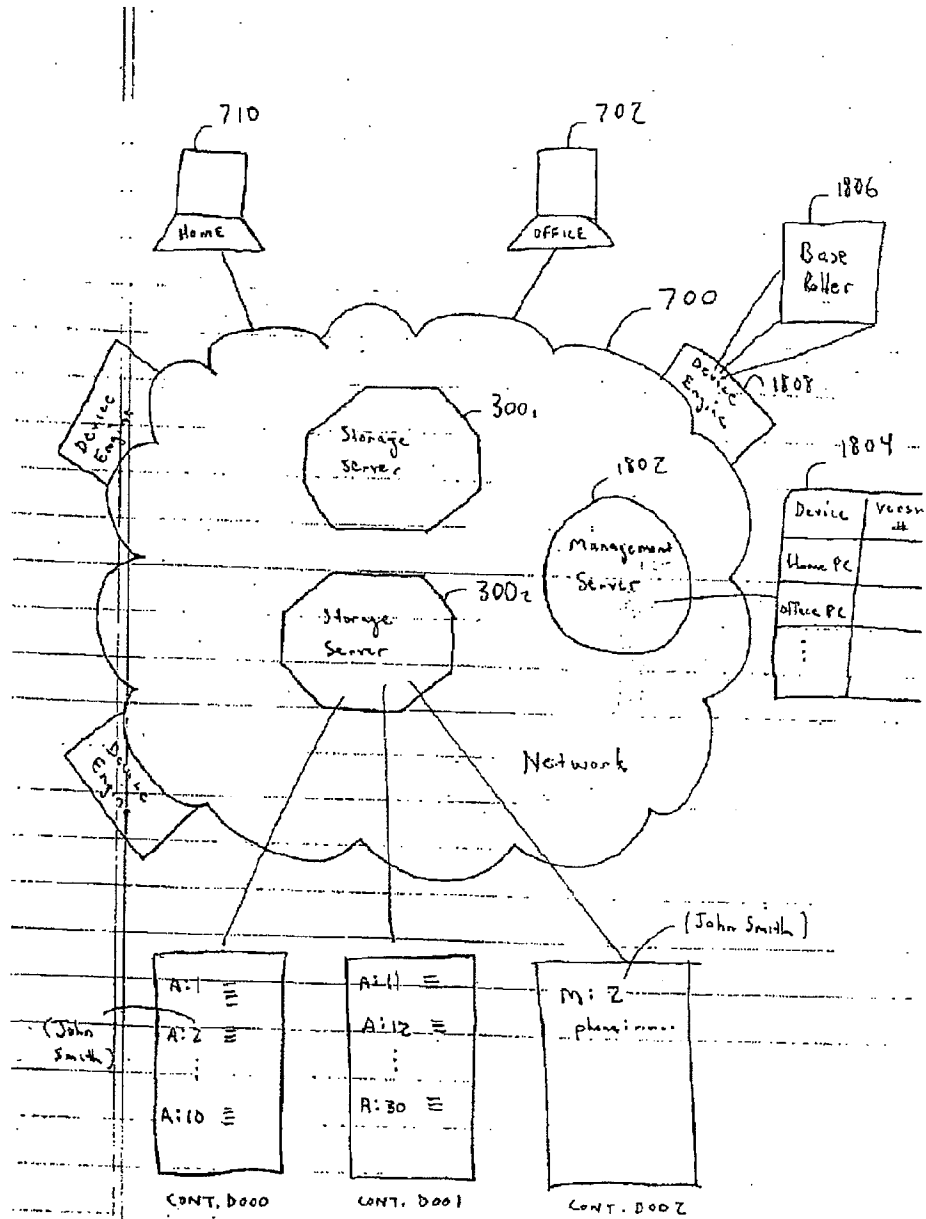 710
702
HOME
OFFICE
1806
Base
Roller
700
Device
Engine
1808
Device
Engine
300₁
Storage
Server
1802
Management
Server
1804
Device
Home PC
Office PC
⋮
300₂
Storage
Server
Device
Engine
Network
(John Smith)
A:1
A:2
⋮
A:10
(John
Smith)
A:11
A:12
⋮
A:30
M: 2
phone:
CONT. D000
CONT. D001
CONT. D002